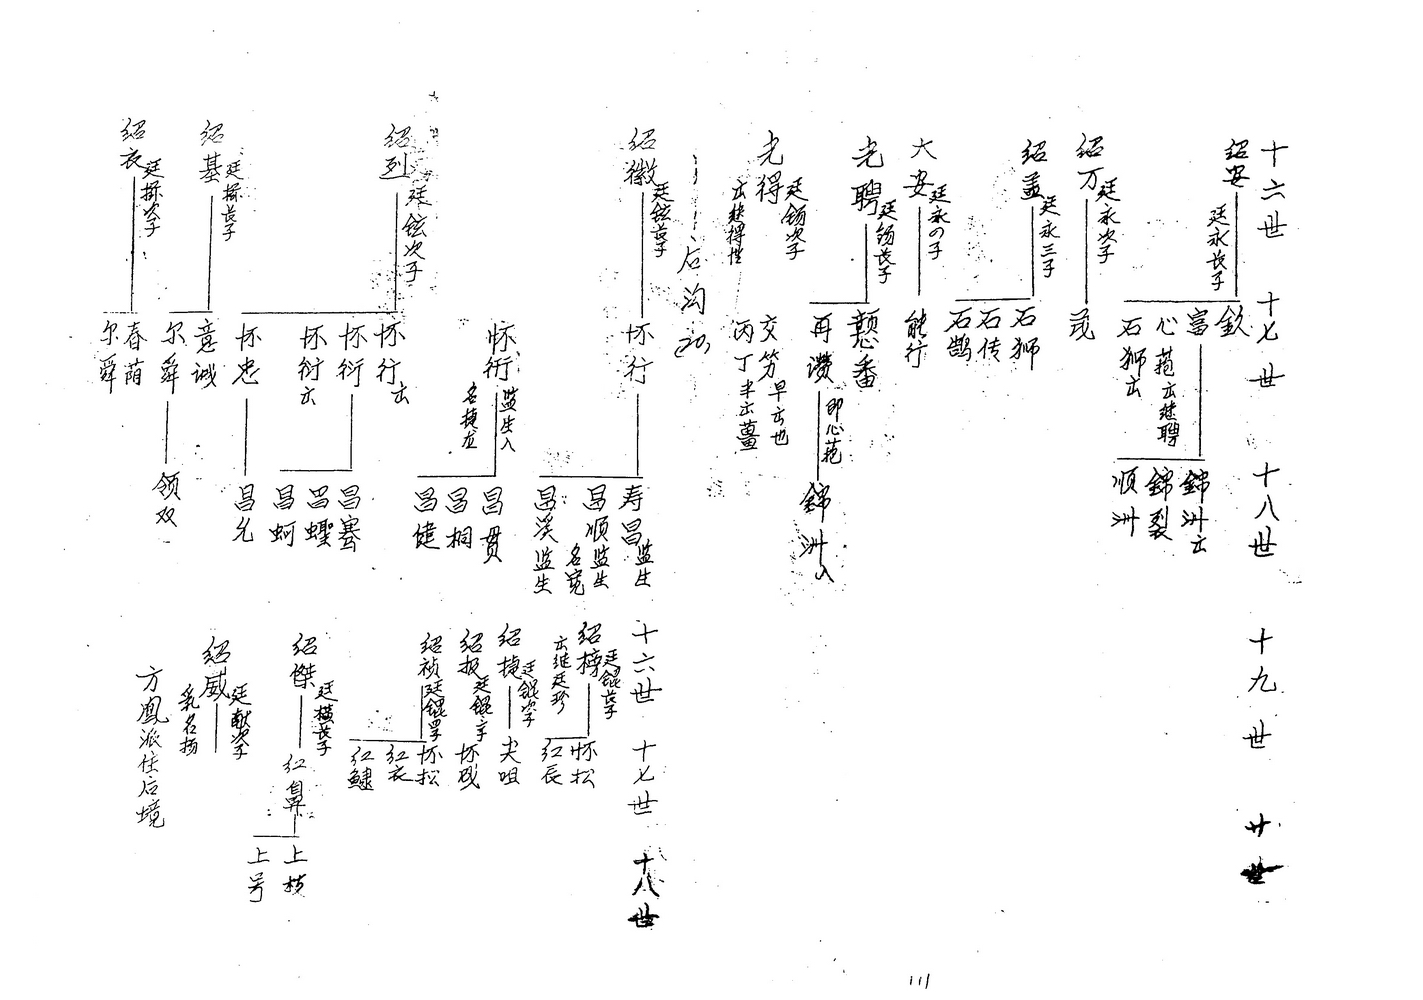 十六世
十七世
十八世
十九世
廿世
绍安
廷永长子
釹
富
心苞出继聘
石狮出
錦洲出
錦裂
順洲
绍万
廷永次子
茂
绍盖
廷永三子
石狮
石传
石鹄
大安
廷永の子
能行
光聘
廷钖长子
再瓒
即心苞
錦洲入
光得
廷钖次子
出继得性
交竻早亡也
丙丁
后沟
绍徽
廷鉉长子
怀行
寿昌监生
昌顺监生
名宽
昌溪监生
怀衍
监生入
名捷龙
昌贯
昌桐
昌健
绍列
廷鉉次子
怀行出
怀衍
怀衍出
怀忠
昌骞
昌蟶
昌蚵
昌允
绍基
廷探长子
意诚
尔舜
领双
绍衣
廷探次子
春荫
尔舜
十六世
十七世
十八世
绍榜
廷錕长子
出继廷珍
怀松
红辰
绍捷
廷錕次子
尖咀
绍报
廷錕三子
怀残
绍祯
廷錕四子
怀松
红衣
红鱐
绍傑
廷横长子
红鼻
上枝
上号
绍威
廷献次子
乳名扬
方鳳派住后境
111